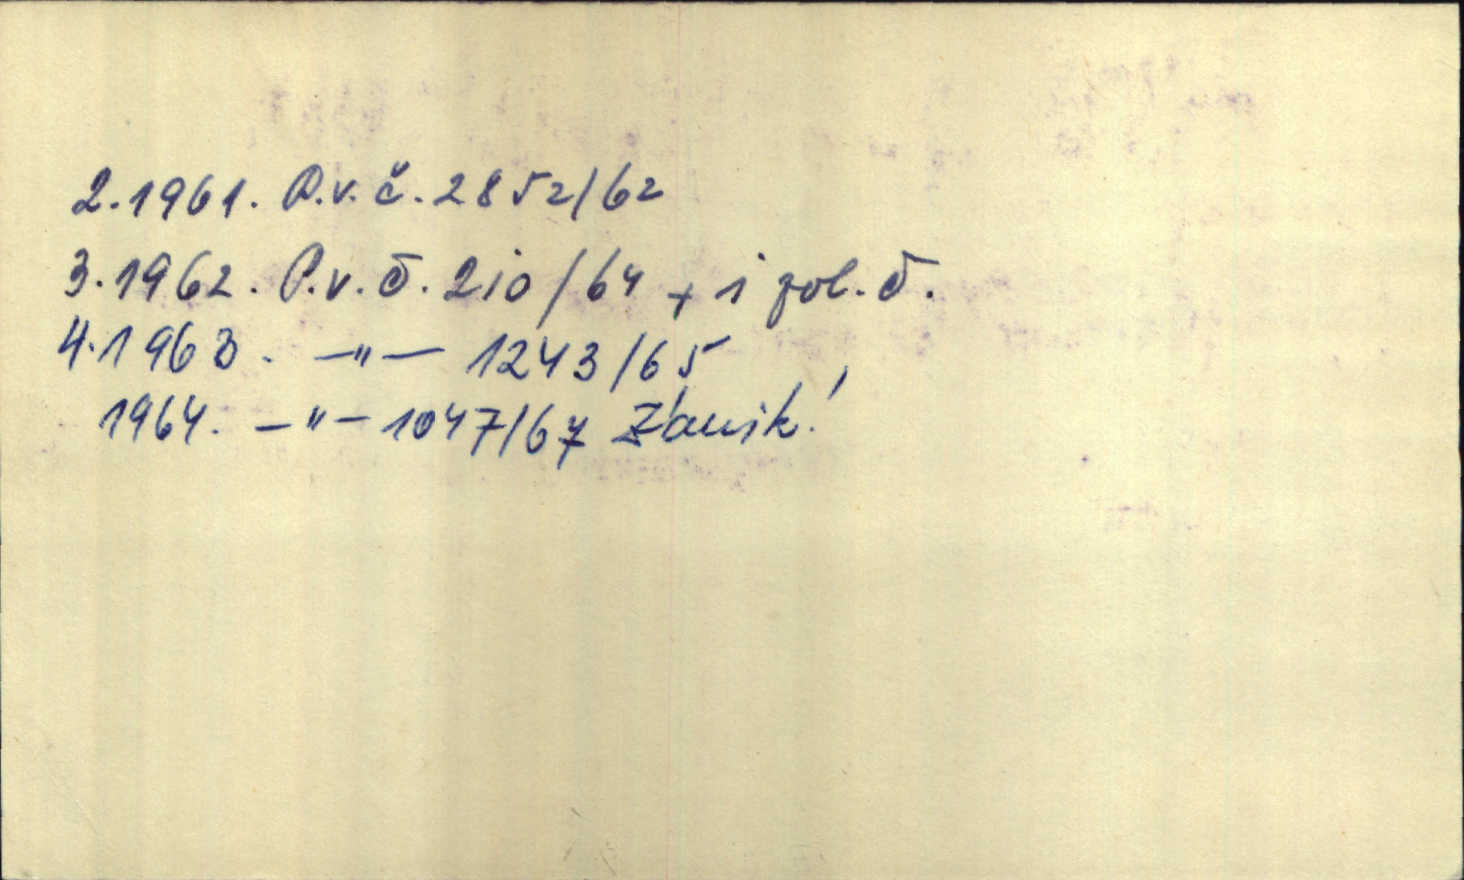 2.1961. P.v.č. 2852/62
3.1962. P.v.č. 210/64 + 1 zvl. č.
4.1963. —"— 1243/65
1964. —"— 1047/67 Zánik!